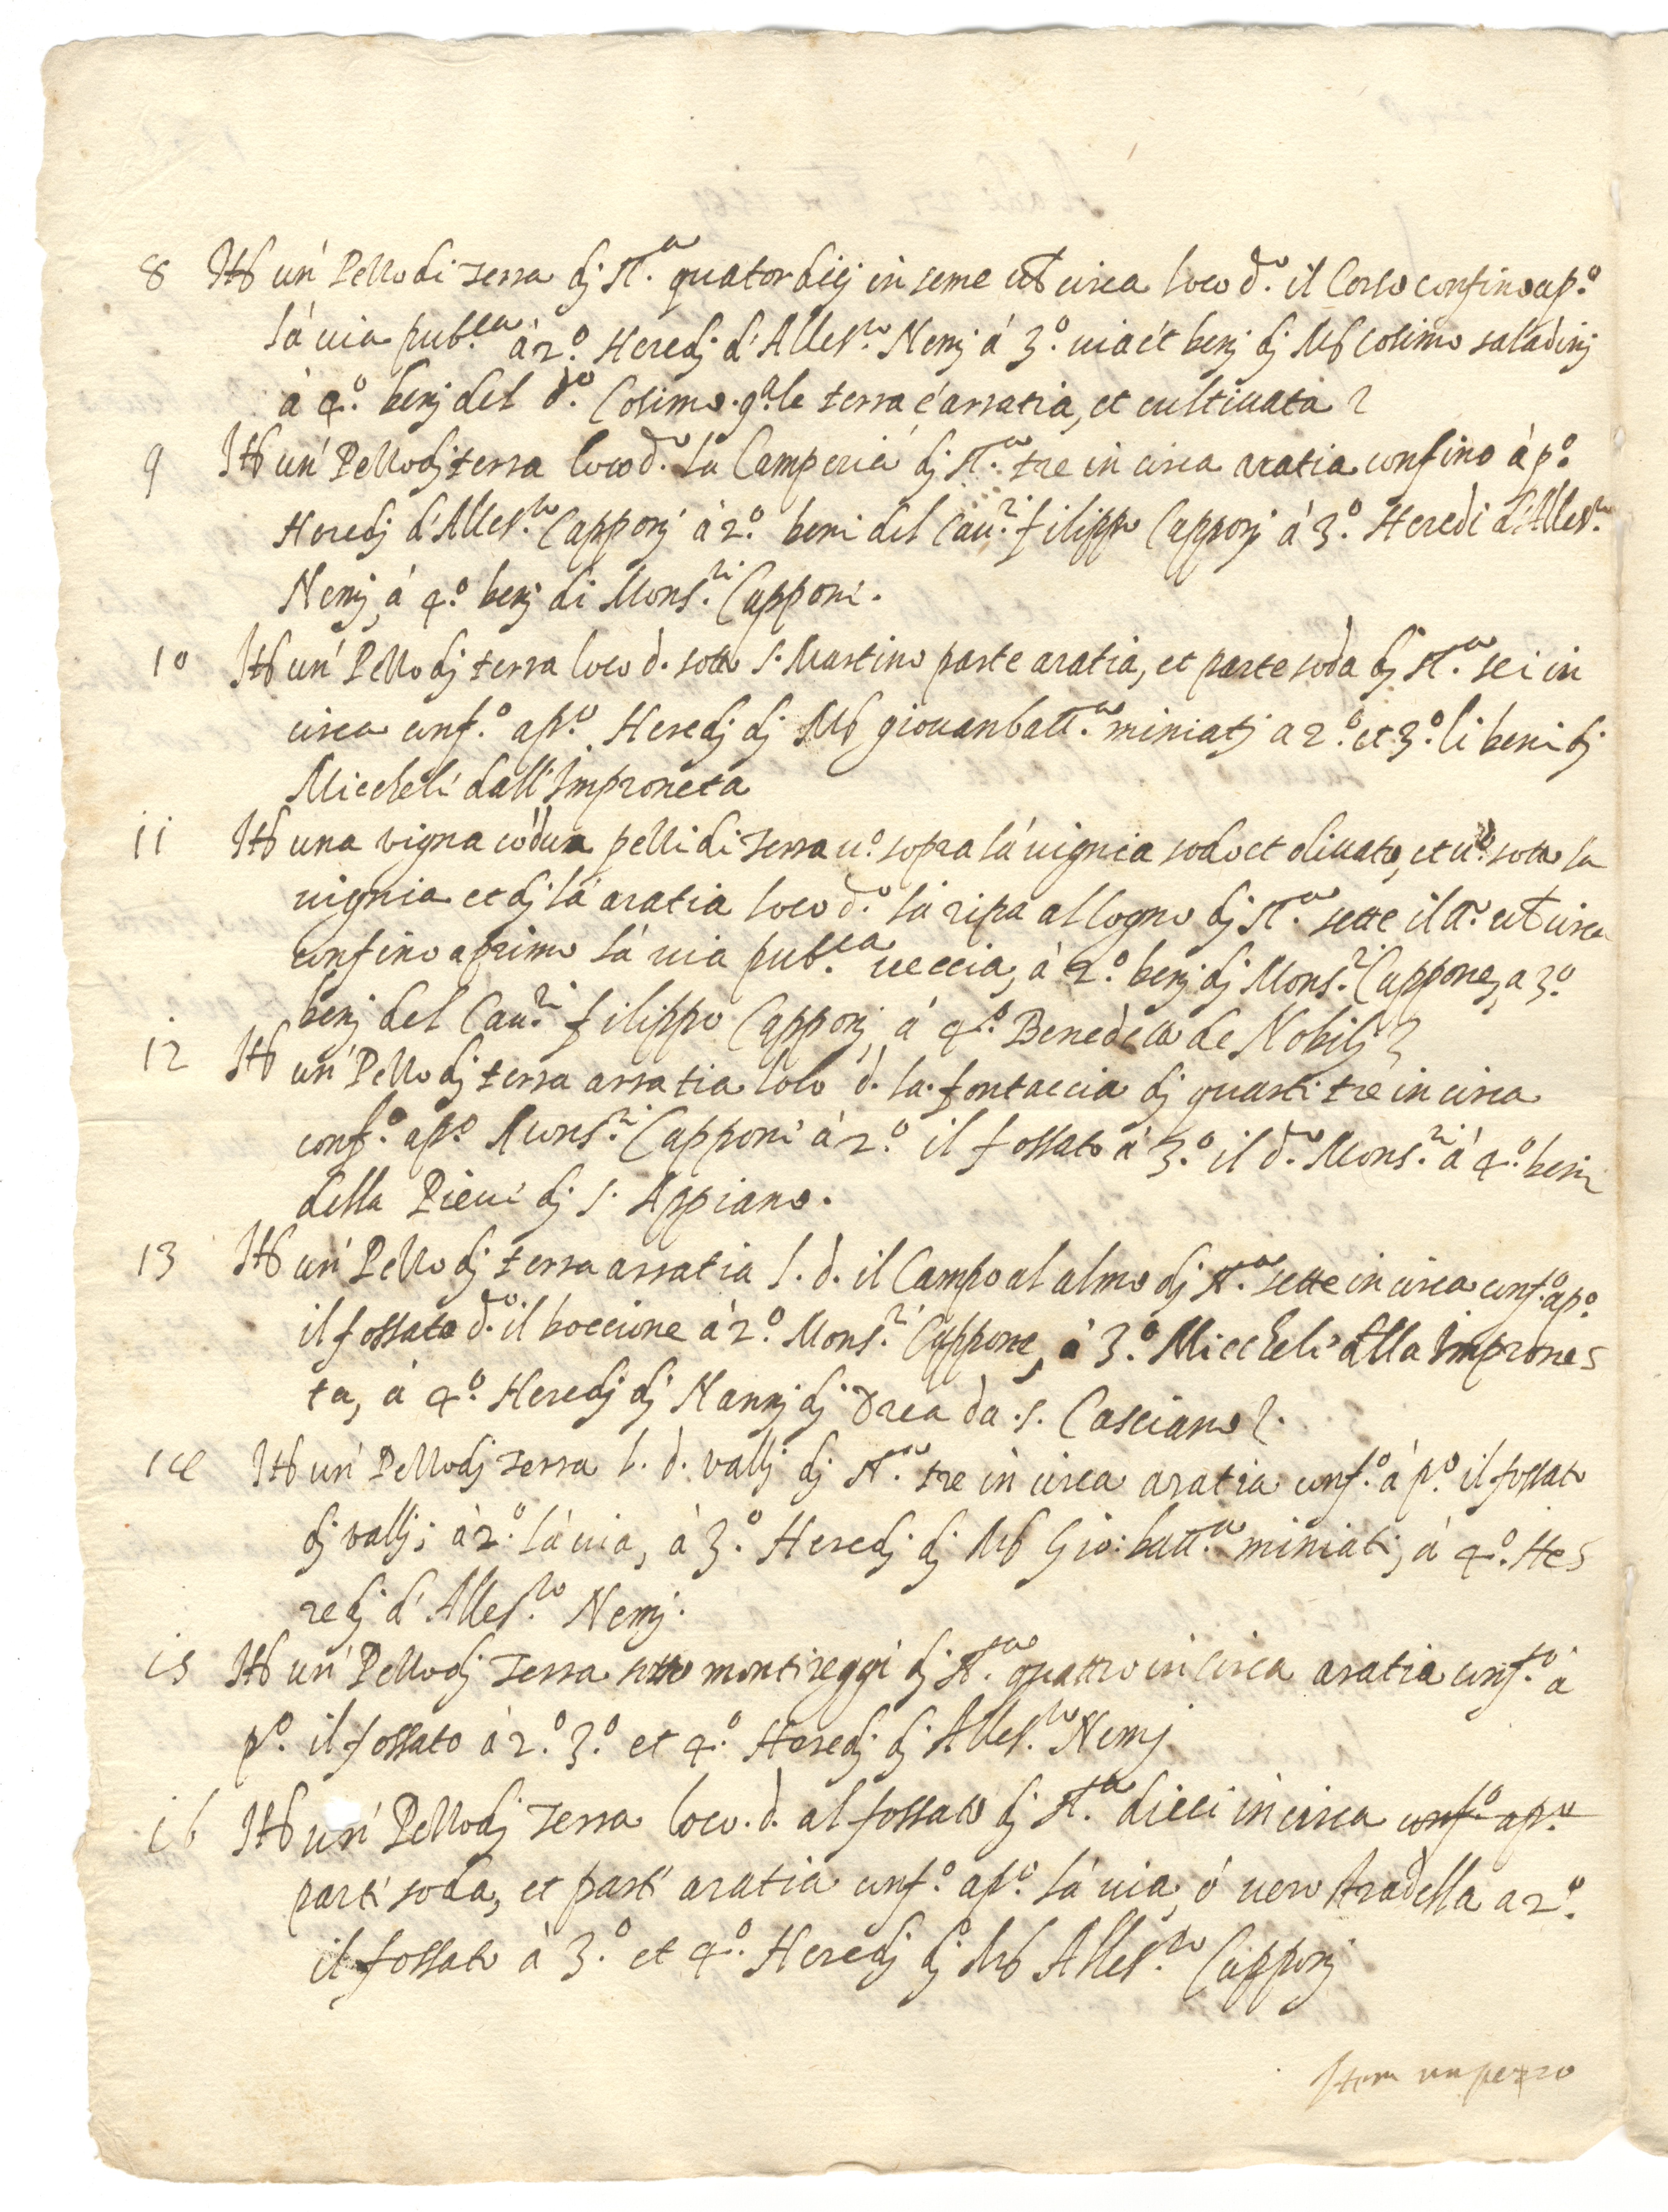 8 Itē un' Pezzo di Terra dj st.ª quatordicj in seme et circa loco d.º il Corso confino ap.º
la via pub.ca à 2.º Heredj d'Alles.ro Nerij à 3.º via et benj dj Mess Cosimo saladinj
à 4.º benj del d.º Cosimo. q.le terra è arratia, et cultivata
9 Itē un' Pezzo dj terra loco d.º la Camperia dj st.ª tre in circa aratia confino à p.º
Heredj d'Alles.ro Capponj à 2.º beni del Cav.ri filippo Capponj à 3.º Heredi d'Alles.ro
Nerij, à 4.º benj di Mons.ri Capponi.
10 Itē un' Pezzo dj terra loco d. sotto S. Martino parte aratia, et parte soda dj st.ª sei in
circa conf.º ap.º Heredj dj Mess giovanbatt.ª miniatj a 2.º et 3.º li beni dj
Miccheli dall'Improneta
11 Itē una vigna cō dua pezzi di Terra u.º sopra la vignia sodo et olivato, et u.º sotto la
vignia et dj la aratia loco d.º la ripa al logno dj st.ª sette il tt.º et circa
confino a primo la via pub.ca veccia, à 2.º benj dj Mons.ri Cappone, a 3.º
benj del Cav.ri filippo Capponj, à 4.º Benedetto de Nobilj
12 Itē un' Pezzo dj terra arratia loco d. la fontaccia dj quarti tre in circa
conf.º ap.º Mons.ri Capponi à 2.º il fossato à 3.º il d.º Mons.ri à 4.º beni
della Pieve dj S. Appiano.
13 Itē un' Pezzo dj terra arratia l. d. il Campo al almo dj st.ª sette in circa conf.º ap.º
il fossato d.º il boccione à 2.º Mons.ri Cappone, à 3.º Miccheli dalla Imprones
ta, à 4.º Heredj dj Nannj dj Drea da S. Casciano.
14 Itē un' Pezzo dj Terra l. d. vallj dj st.ª tre in circa aratia conf.º à p.º il fossato
dj vallj; à 2.º la via, à 3.º Heredj dj Mess Gio: batt.ª miniati, à 4.º He
redj d'Alles.ro Nerij.
15 Itē un' Pezzo dj Terra sotto montireggi dj st.ª quattro in circa aratia conf.º à
p.º il fossato à 2.º 3.º et 4.º Heredj dj Alles.ro Nerij
16 Itē un' Pezzo dj Terra loco. d. al fossato dj st.ª dieci in circa conf.º ap.º
parti soda, et parti aratia conf.º ap.º la via, ó vero stradella a 2.º
il fossato à 3.º et 4.º Heredj dj Mess Alles.ro Capponj
Item un pezzo